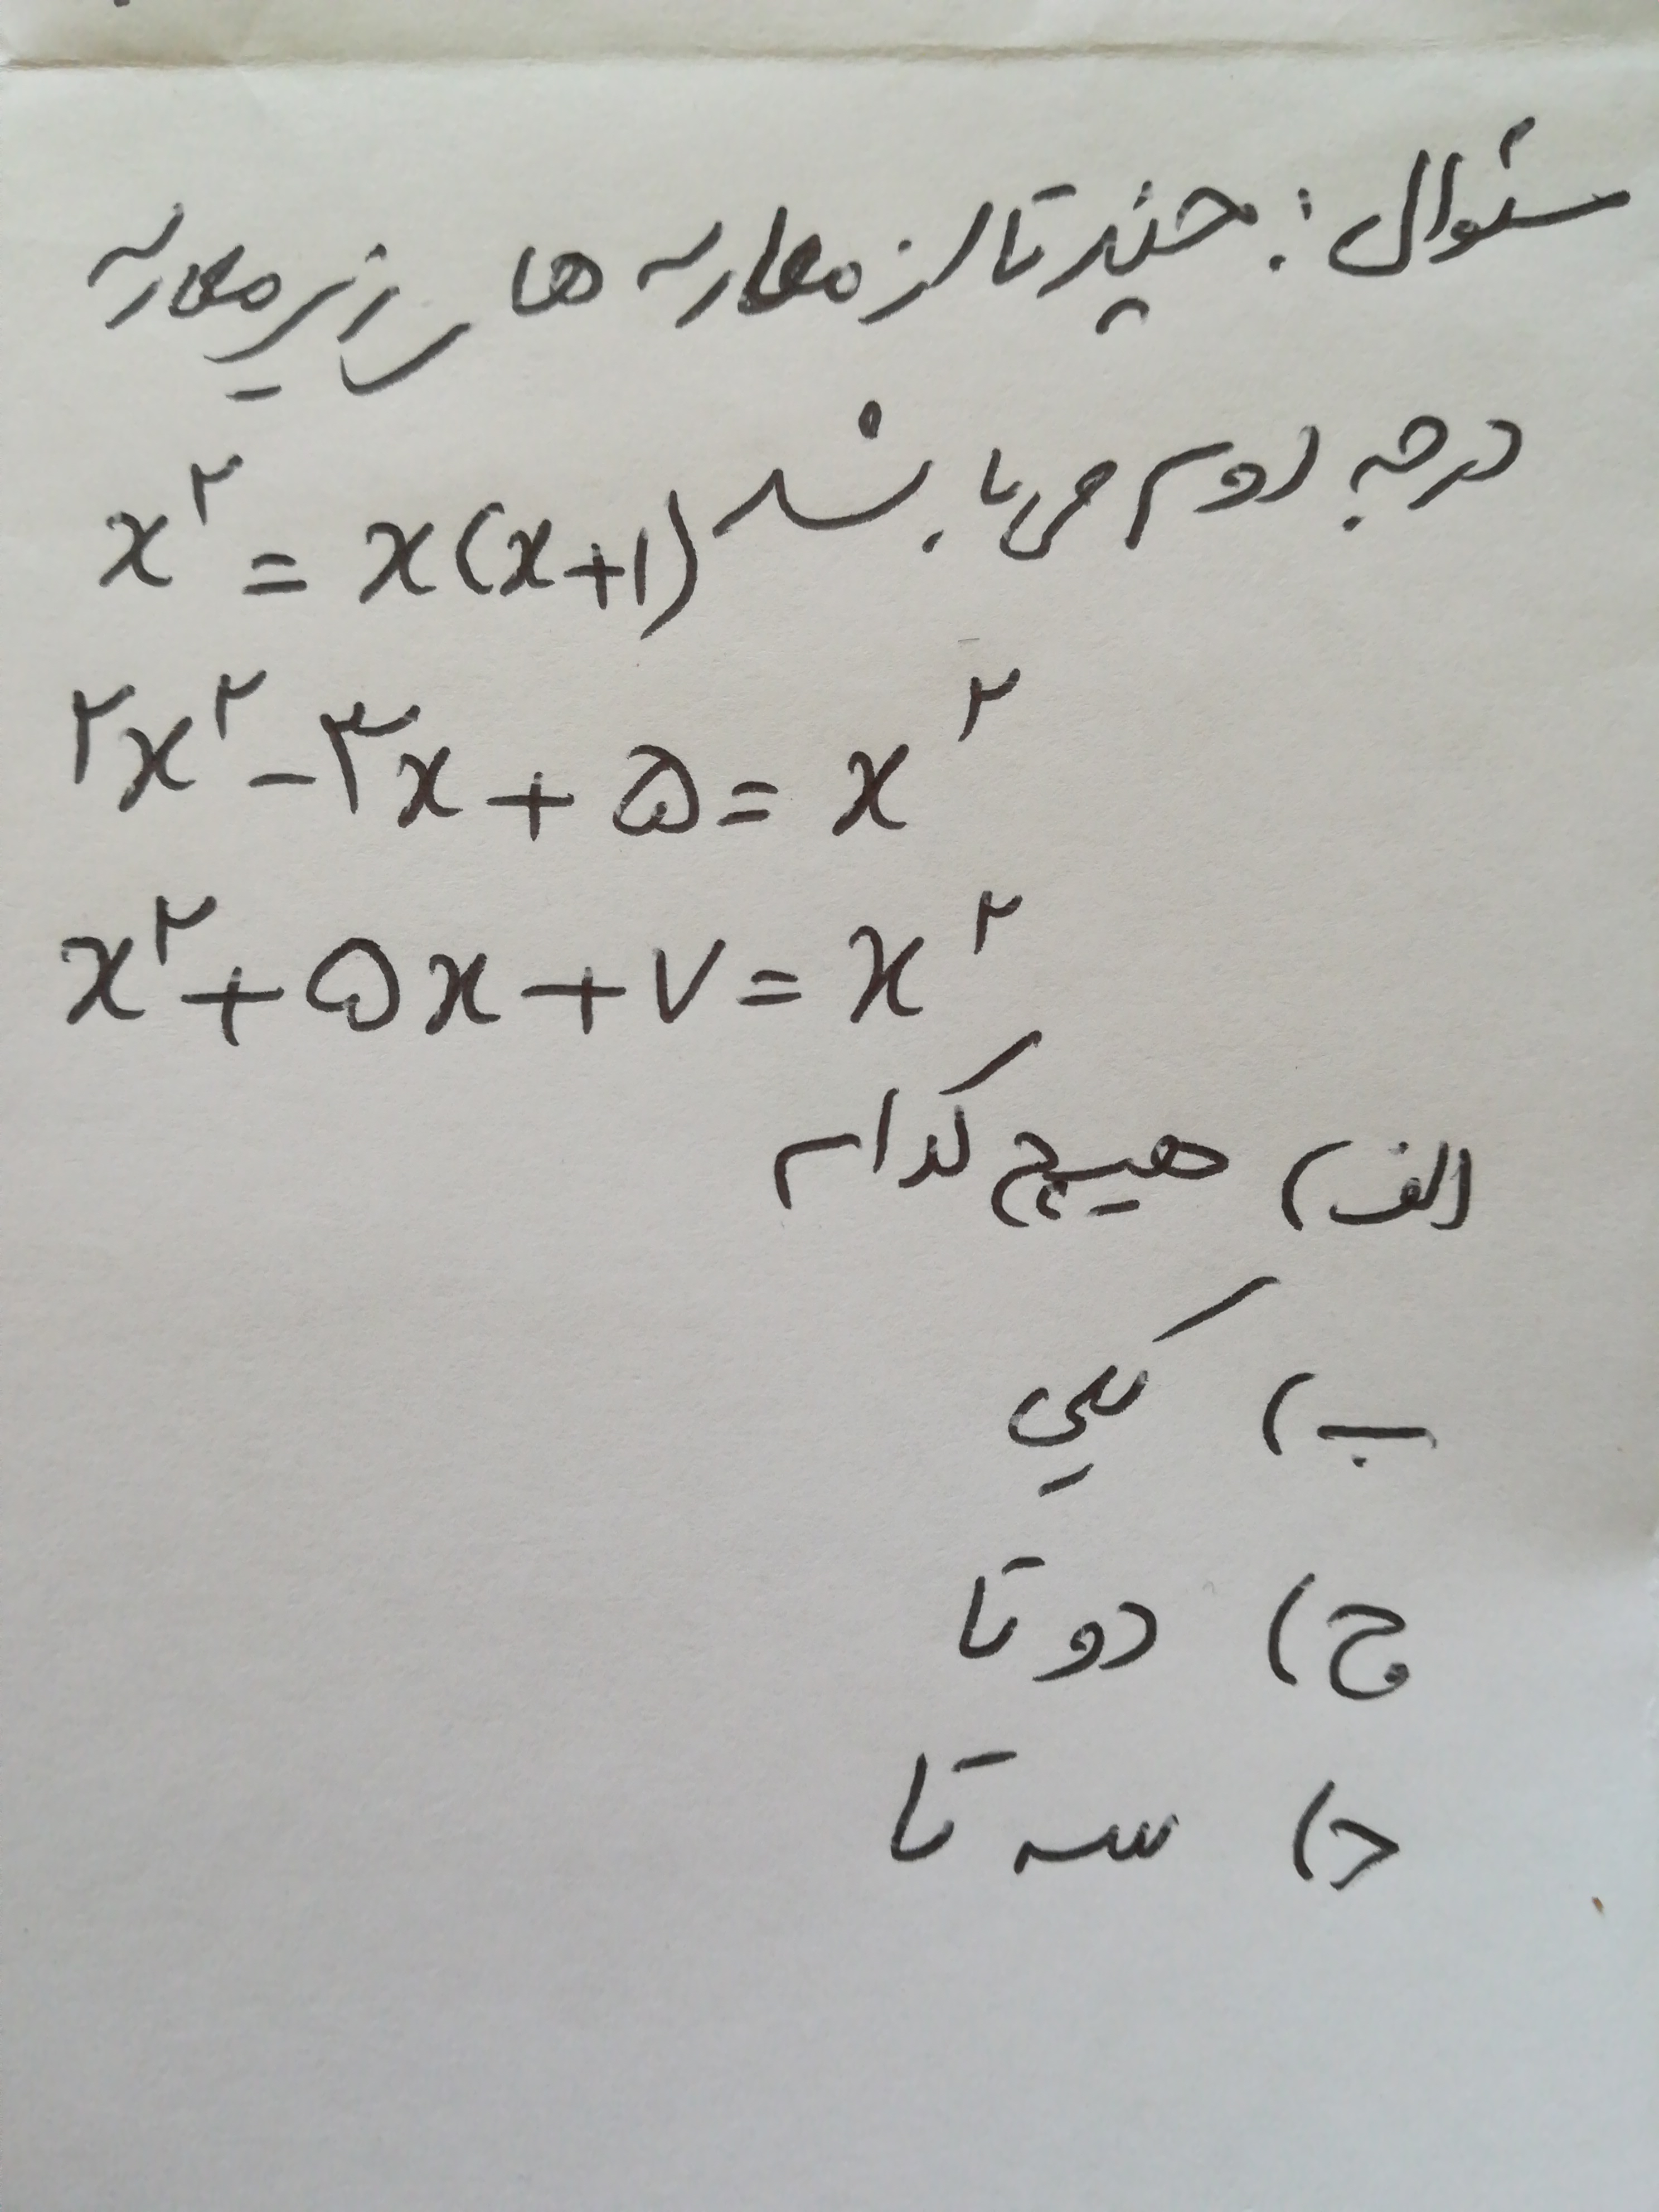 سئوال: چند تا از معادله ها زیر معادله
درجه دوم می باشد x^۲ = x(x+۱)
۲x^۲ - ۳x + ۵ = x^۲
x^۲ + ۵x + ۷ = x^۲
الف) هیچ کدام
ب) یکی
ج) دو تا
د) سه تا